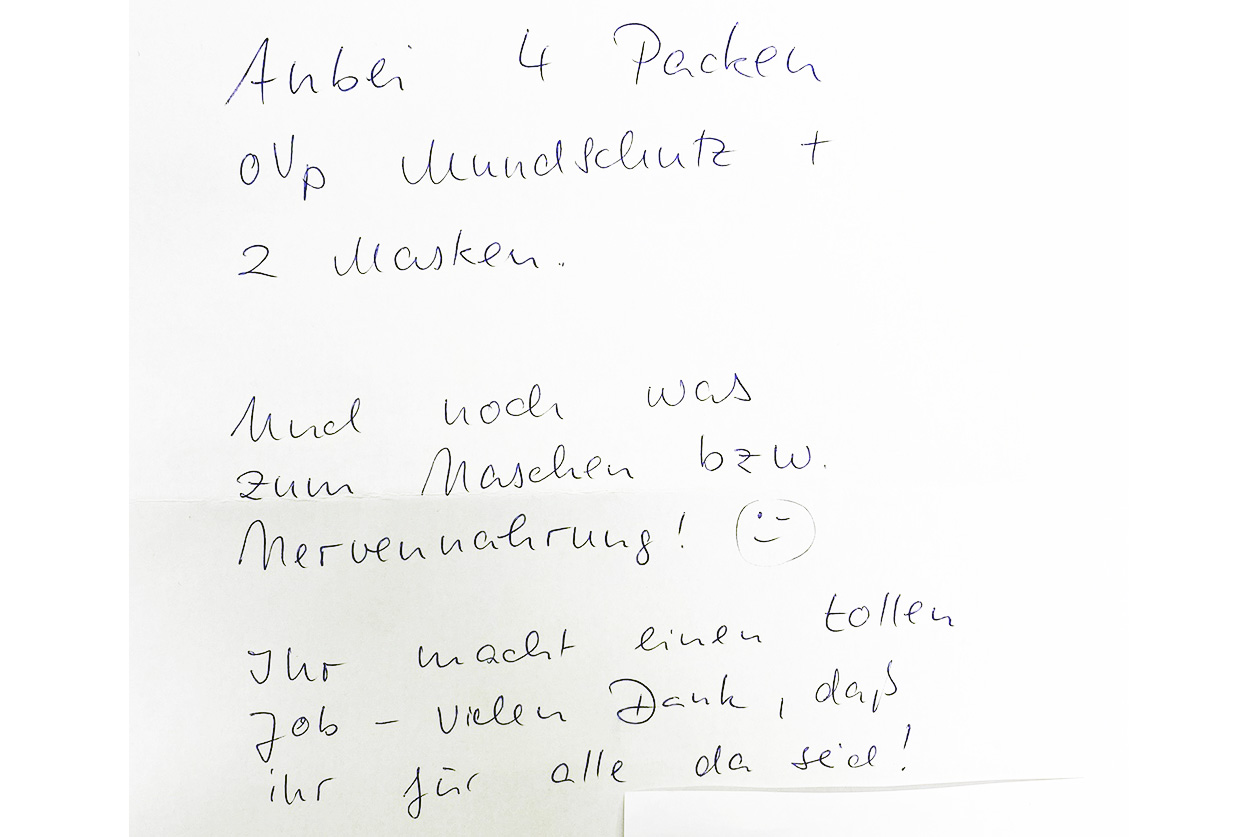 Anbei 4 Packen
OVp Mundschutz +
2 Masken.
Und noch was
zum Naschen bzw.
Nervennahrung!
Ihr macht einen tollen
Job – vielen Dank, daß
ihr für alle da seid!